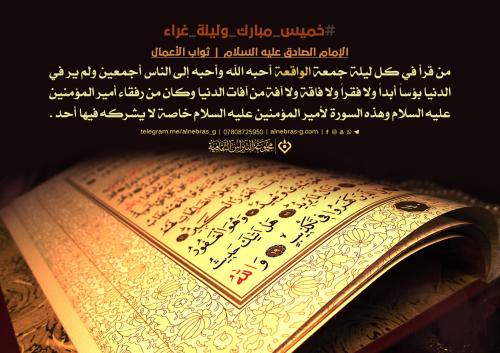 #خميس_مبارك_وليلة_غراء
الإمام الصادق عليه السلام | ثواب الأعمال
من قرأ في كل ليلة جمعة الواقعة أحبه الله وأحبه إلى الناس أجمعين ولم ير في
الدنيا بؤساً أبداً ولا فقراً ولا فاقة ولا آفة من آفات الدنيا وكان من رفقاء أمير المؤمنين
عليه السلام وهذه السورة لأمير المؤمنين عليه السلام خاصة لا يشركه فيها أحد .
telegram.me/alnebras_g | 07808725950 | alnebras-g.com |
مجموعة النبراس الثقافية
وهو الغفور
هل أتىك حديث
والله